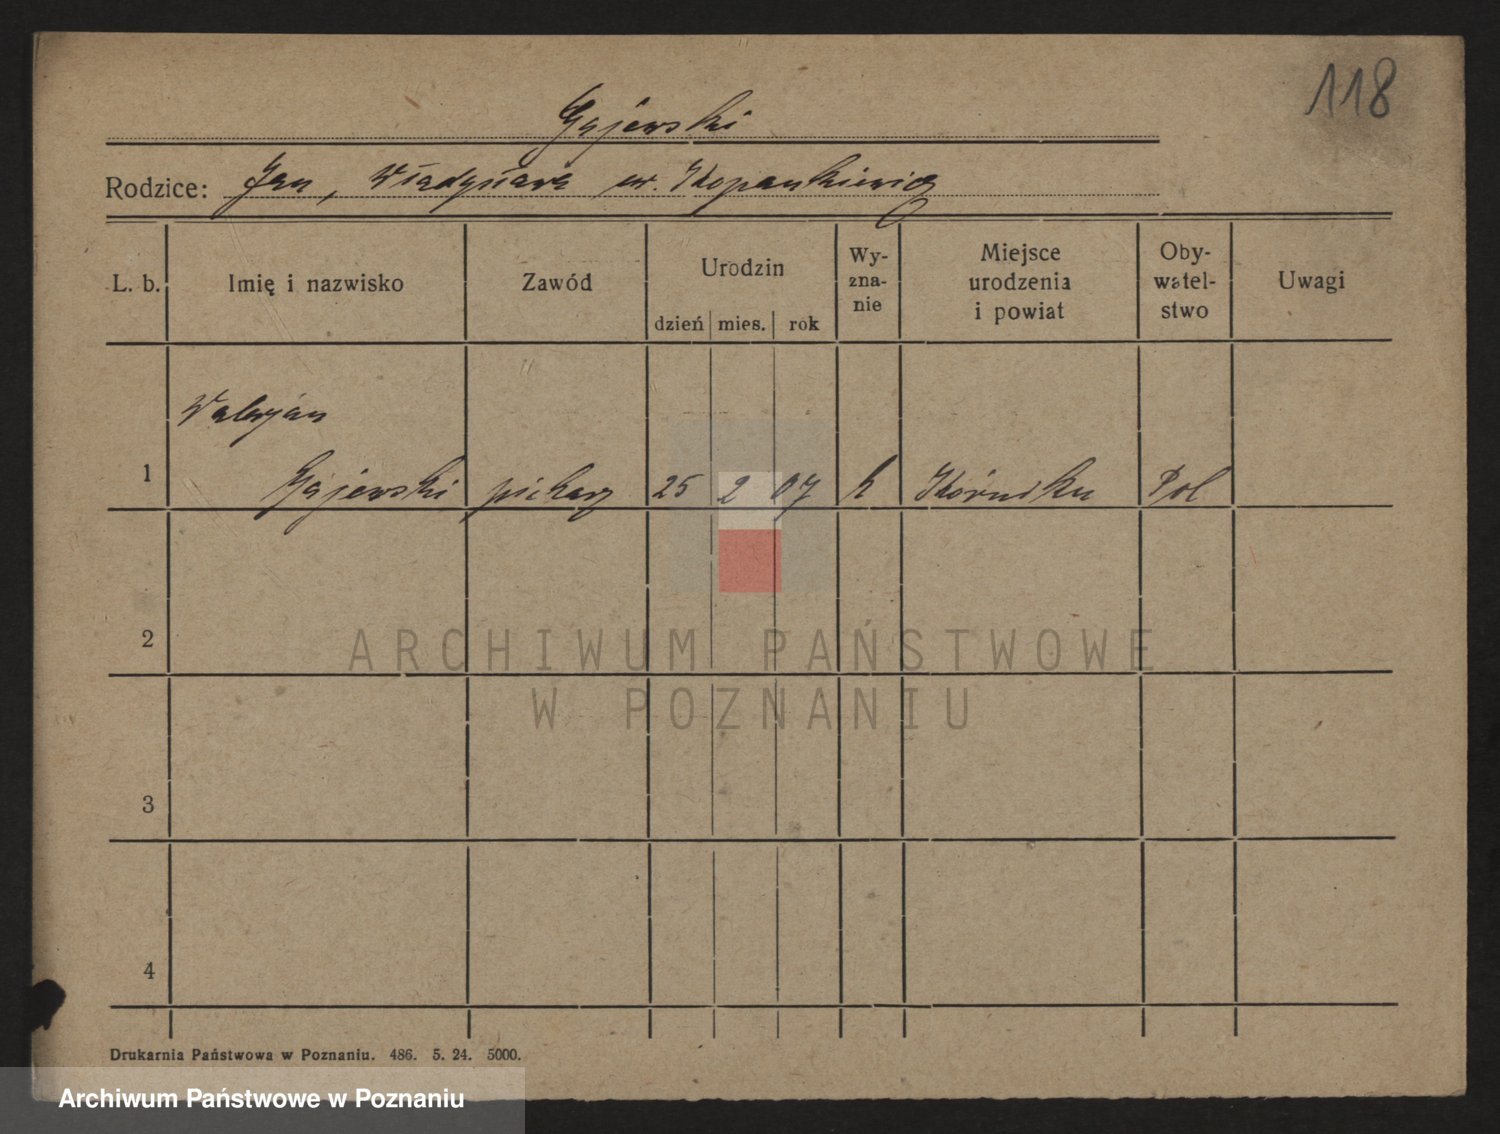 118
Gajewski
Rodzice: Jan, Władysława ur. Kopankiewicz
L. b.
Imię i nazwisko
Zawód
Urodzin
dzień mies. rok
Wy-
zna-
nie
Miejsce
urodzenia
i powiat
Oby-
watel-
stwo
Uwagi
Waleryan
1 Gajewski piekarz 25 2 07 k Kórniku Pol
2
ARCHIWUM PAŃSTWOWE
W POZNANIU
3
4
Drukarnia Państwowa w Poznaniu. 486. 5. 24. 5000.
Archiwum Państwowe w Poznaniu